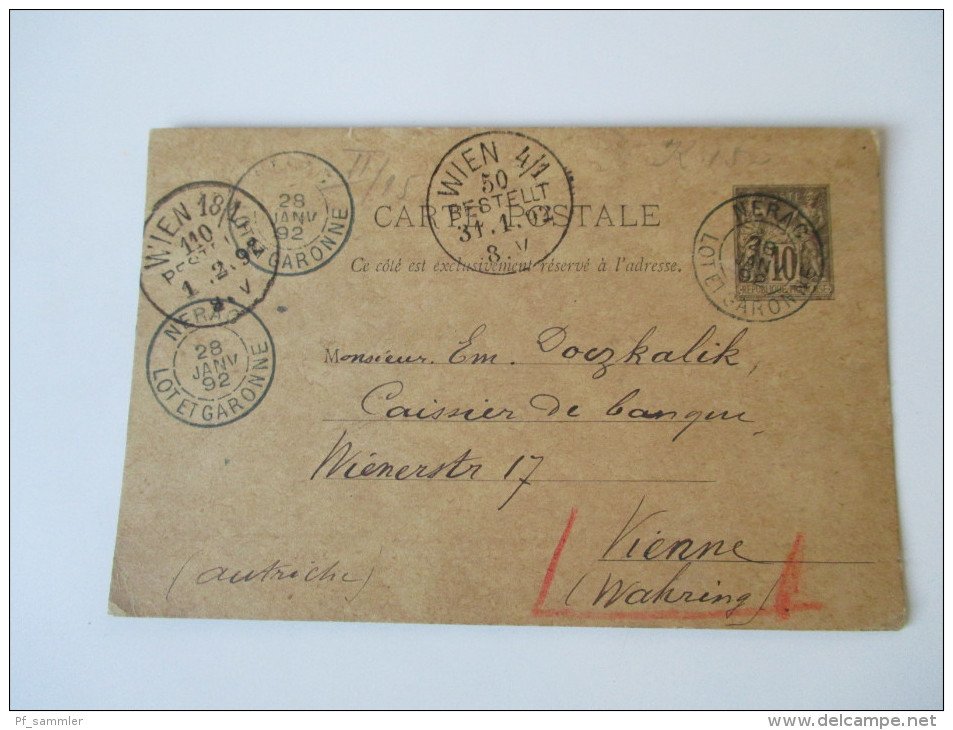 II/15
K 152
WIEN 4/1
50
BESTELLT
31.1.92
8. V
WIEN 18/1
110
1.2.9
8. V
28
JANV
92
GARONNE
NERAC
28
JANV
92
LOT ET GARONNE
NERAC
28
JANV
LOT ET GARONNE
10
CARTE POSTALE
Ce côté est exclusivement réservé à l'adresse.
Monsieur Em. Doczkalik,
Caissier de banque
Wienerstr 17
Vienne
(autriche)
(Wahring)
Pf_sammler
www.delcampe.net